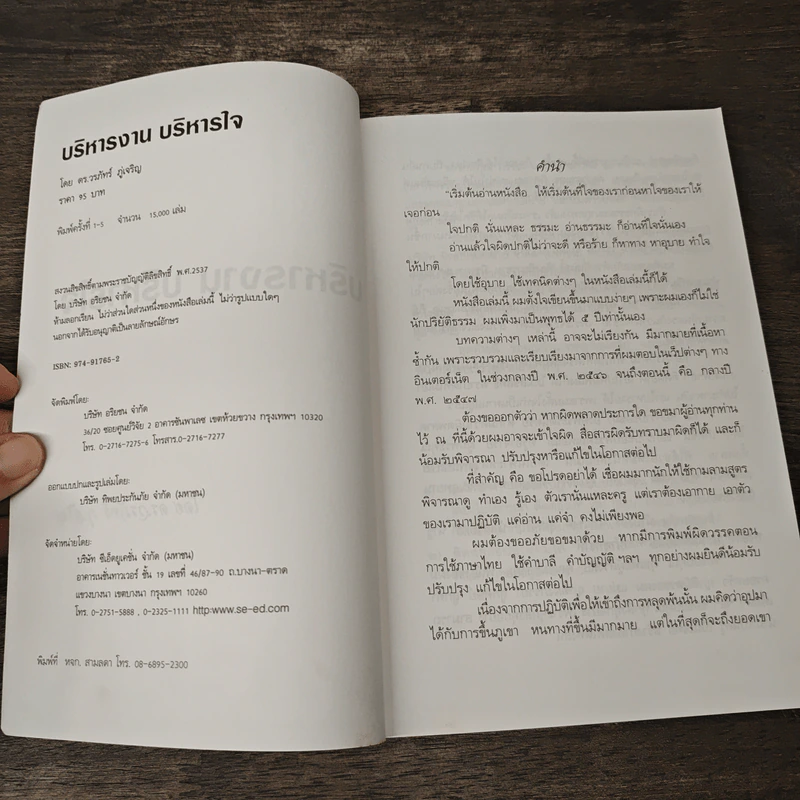 บริหารงาน บริหารใจ
โดย ดร.วรภัทร์ ภู่เจริญ
ราคา 95 บาท
พิมพ์ครั้งที่ 1-5 จำนวน 15,000 เล่ม
สงวนสิขสิทธิ์ตามพระราชบัญญัติลิขสิทธิ์ พ.ศ.2537
โดย บริษัท อริยชน จำกัด
ห้ามลอกเรียน ไม่ว่าส่วนใดส่วนหนึ่งของหนังสือเล่มนี้ ไม่ว่ารูปแบบใดๆ
นอกจากได้รับอนุญาติเป็นลายลักษณ์อักษร
ISBN: 974-91765-2
จัดพิมพ์โดย:
บริษัท อริยชน จำกัด
36/20 ซอยศูนย์วิจัย 2 อาคารชันพาเลซ เขตห้วยขวาง กรุงเทพฯ 10320
โทร. 0-2716-7275-6 โทรสาร.0-2716-7277
ออกแบบปกและรูปเล่มโดย:
บริษัท ทิพยประกันภัย จำกัด (มหาชน)
จัดจำหน่ายโดย:
บริษัท ซีเอ็ดยูเคชั่น จำกัด (มหาชน)
อาคารเนชั่นทาวเวอร์ ชั้น 19 เลขที่ 46/87-90 ถ.บางนา-ตราด
แขวงบางนา เขตบางนา กรุงเทพฯ 10260
โทร. 0-2751-5888 , 0-2325-1111 http:www.se-ed.com
พิมพ์ที่ หจก. สามลดา โทร. 08-6895-2300
คำนำ
"เริ่มต้นอ่านหนังสือ ให้เริ่มต้นที่ใจของเราก่อนหาใจของเราให้
เจอก่อน
ใจปกติ นั่นแหละ ธรรมะ อ่านธรรมะ ก็อ่านที่ใจนั่นเอง
อ่านแล้วใจผิดปกติไม่ว่าจะดี หรือร้าย ก็หาทาง หาอุบาย ทำใจ
ให้ปกติ
โดยใช้อุบาย ใช้เทคนิคต่างๆ ในหนังสือเล่มนี้ก็ได้
หนังสือเล่มนี้ ผมตั้งใจเขียนขึ้นมาแบบง่ายๆ เพราะผมเองก็ไม่ใช่
นักปริยัติธรรม ผมเพิ่งมาเป็นพุทธได้ ๕ ปีเท่านั้นเอง
บทความต่างๆ เหล่านี้ อาจจะไม่เรียงกัน มีมากมายที่เนื้อหา
ซ้ำกัน เพราะรวบรวมและเรียบเรียงมาจากการที่ผมตอบในเว็บต่างๆ ทาง
อินเตอร์เน็ต ในช่วงกลางปี พ.ศ. ๒๕๔๖ จนถึงตอนนี้ คือ กลางปี
พ.ศ. ๒๕๔๗
ต้องขอออกตัวว่า หากผิดพลาดประการใด ขอขมาผู้อ่านทุกท่าน
ไว้ ณ ที่นี้ด้วยผมอาจจะเข้าใจผิด สื่อสารผิดรับทราบมาผิดก็ได้ และก็
น้อมรับพิจารณา ปรับปรุงหารือแก้ไขในโอกาสต่อไป
ที่สำคัญ คือ ขอโปรดอย่าได้ เชื่อผมมากนักให้ใช้กามลามสูตร
พิจารณาดู ทำเอง รู้เอง ตัวเรานั่นแหละครู แต่เราต้องเอากาย เอาตัว
ของเรามาปฏิบัติ แค่อ่าน แค่จำ คงไม่เพียงพอ
ผมต้องขออภัยขอขมาด้วย หากมีการพิมพ์ผิดวรรคตอน
การใช้ภาษาไทย ใช้คำบาลี คำบัญญัติ ฯลฯ ทุกอย่างผมยินดีน้อมรับ
ปรับปรุง แก้ไขในโอกาสต่อไป
เนื่องจากการปฏิบัติเพื่อให้เข้าถึงการหลุดพ้นนั้น ผมคิดว่าอุปมา
ได้กับการขึ้นภูเขา หนทางที่ขึ้นมีมากมาย แต่ในที่สุดก็จะถึงยอดเขา